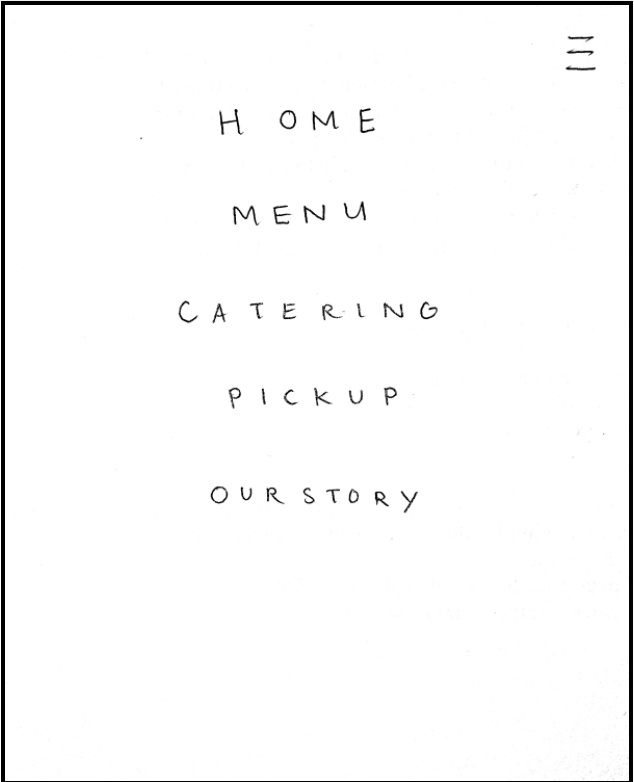 HOME
MENU
CATERING
PICKUP
OUR STORY